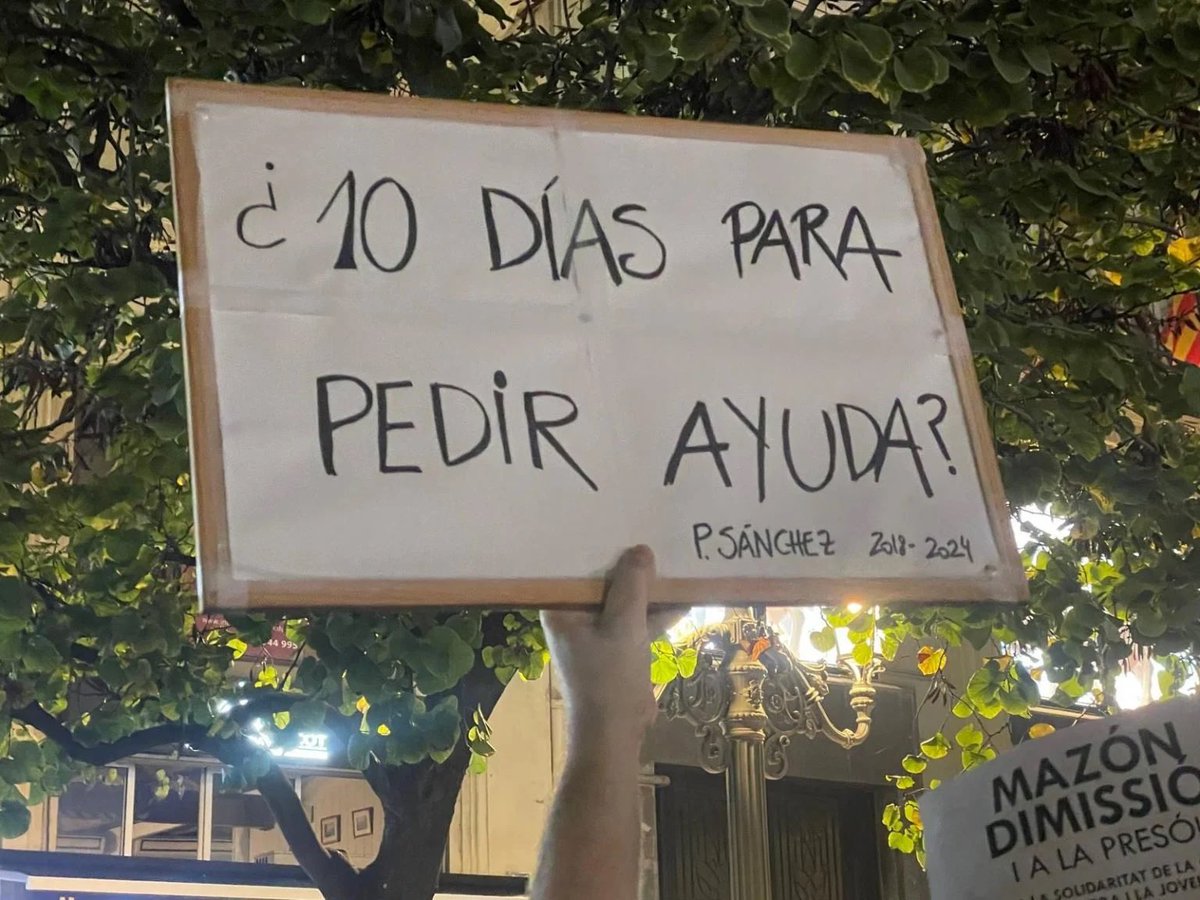 ¿10 DÍAS PARA
PEDIR AYUDA?
P. SÁNCHEZ 2018-2024
MAZÓN
DIMISSIÓ
I A LA PRESÓ
SOLIDARITAT DE LA
LA JOVE
44 995